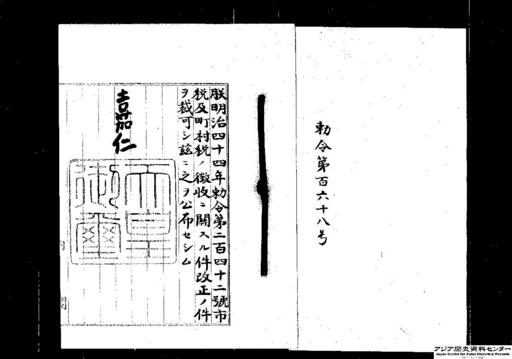 勅令第百六十八号
朕明治四十四年勅令第二百四十二號市
税及町村税ノ徴收ニ關スル件改正ノ件
ヲ裁可シ茲ニ之ヲ公布セシム
嘉仁
天皇
御璽
アジア歴史資料センター
Japan Center for Asian Historical Records